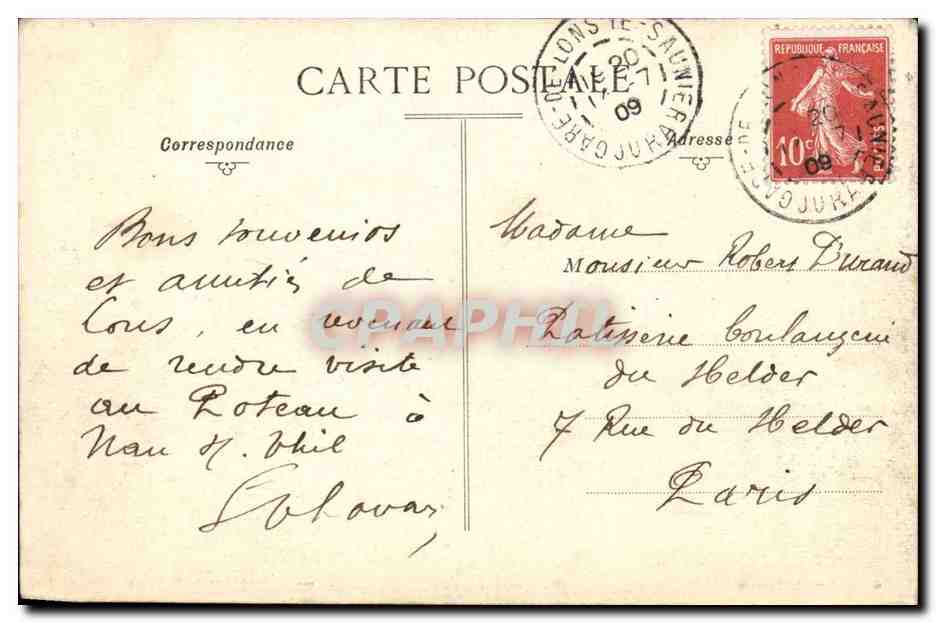 CARTE POSTALE
Correspondance
Adresse
GARE-DE-LONS-LE-SAUNIER JURA
20
7
09
REPUBLIQUE FRANÇAISE
10c POSTES
GARE-DE SAUNIER JURA
20
7
09
Bons souvenirs
et amitiés de
Lons, en revenant
de rendre visite
au Poteau à
Madame
Monsieur Robert Durand
Patisserie boulangerie
du Helder
7 Rue du Helder
Paris
CPAPHIL